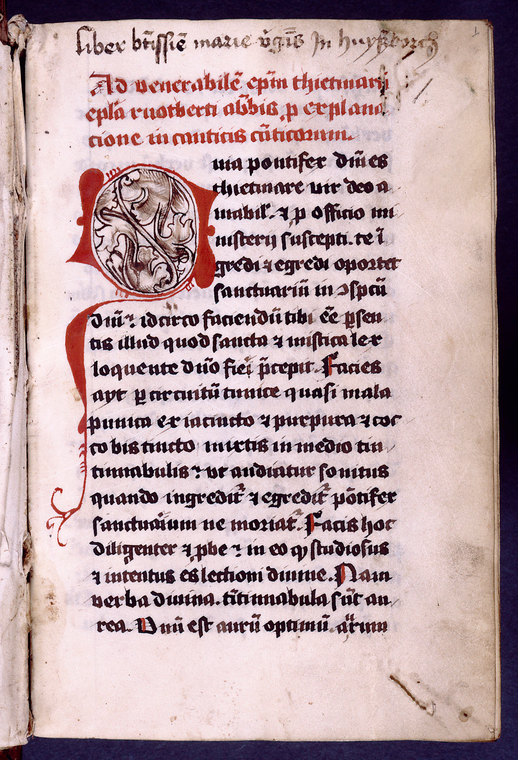 Liber btissie marie v̄gīs In huysborch
Ad venerabilē ep̄m thietmarū
epl̄a ruotberti ab̄bis p explana
cione in canticis cāticorum.
Quia pontifex dn̄i es
thietmare vir deo a
mabil̓. ⁊ p officio mi
nisterij suscepti. te ī
gredi ⁊ egredi oportet
sanctuariū in ɔspcū
dn̄i ⁊ idcirco faciendū tibi eē p̄sen
tis illud quod sancta ⁊ mistica lex
loquente dn̄o fieī p̄cepit. Facies
ayt p circuitū tunice quasi mala
punica ex iacincto ⁊ purpura ⁊ coc
co bis tincto mixtis in medio tin
tinnabulis ⁊ vt audiatur sonitus
quando ingredit̄ ⁊ egredit̄ pōtifex
sanctuārium ne moriat̄. Facis hoc
diligenter ⁊ p̄be ⁊ in eo ꝙ studiosus
⁊ intentus es lectioni diuine. Nam
verba diuina. tītinnabula sūt au
rea. Vnū est aurū optimū.